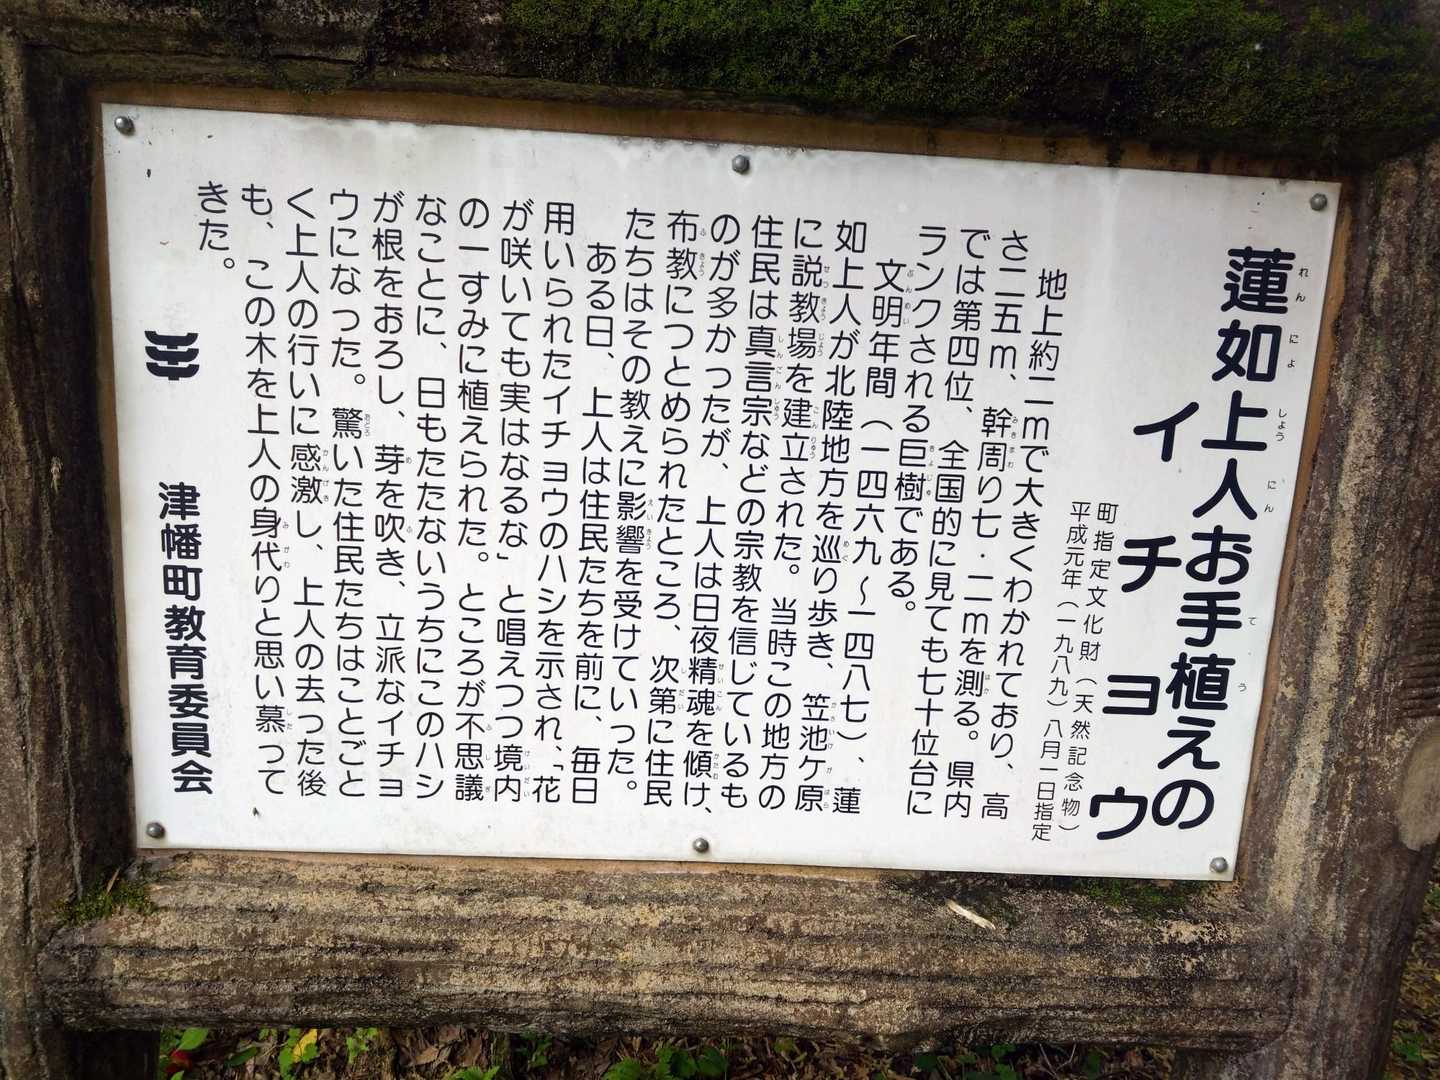 蓮如上人お手植えの
イチョウ
町指定文化財（天然記念物）
平成元年（一九八九）八月一日指定
地上約二ｍで大きくわかれており、高
さ二五ｍ、幹周り七・二ｍを測る。県内
では第四位、全国的に見ても七十位台に
ランクされる巨樹である。
文明年間（一四六九～一四八七）、蓮
如上人が北陸地方を巡り歩き、笠池ケ原
に説教場を建立された。当時この地方の
住民は真言宗などの宗教を信じているも
のが多かったが、上人は日夜精魂を傾け、
布教につとめられたところ、次第に住民
たちはその教えに影響を受けていった。
ある日、上人は住民たちを前に、毎日
用いられたイチョウのハシを示され、「花
が咲いても実はなるな」と唱えつつ境内
の一すみに植えられた。ところが不思議
なことに、日もたたないうちにこのハシ
が根をおろし、芽を吹き、立派なイチョ
ウになった。驚いた住民たちはことごと
く上人の行いに感激し、上人の去った後
も、この木を上人の身代りと思い慕って
きた。
津幡町教育委員会